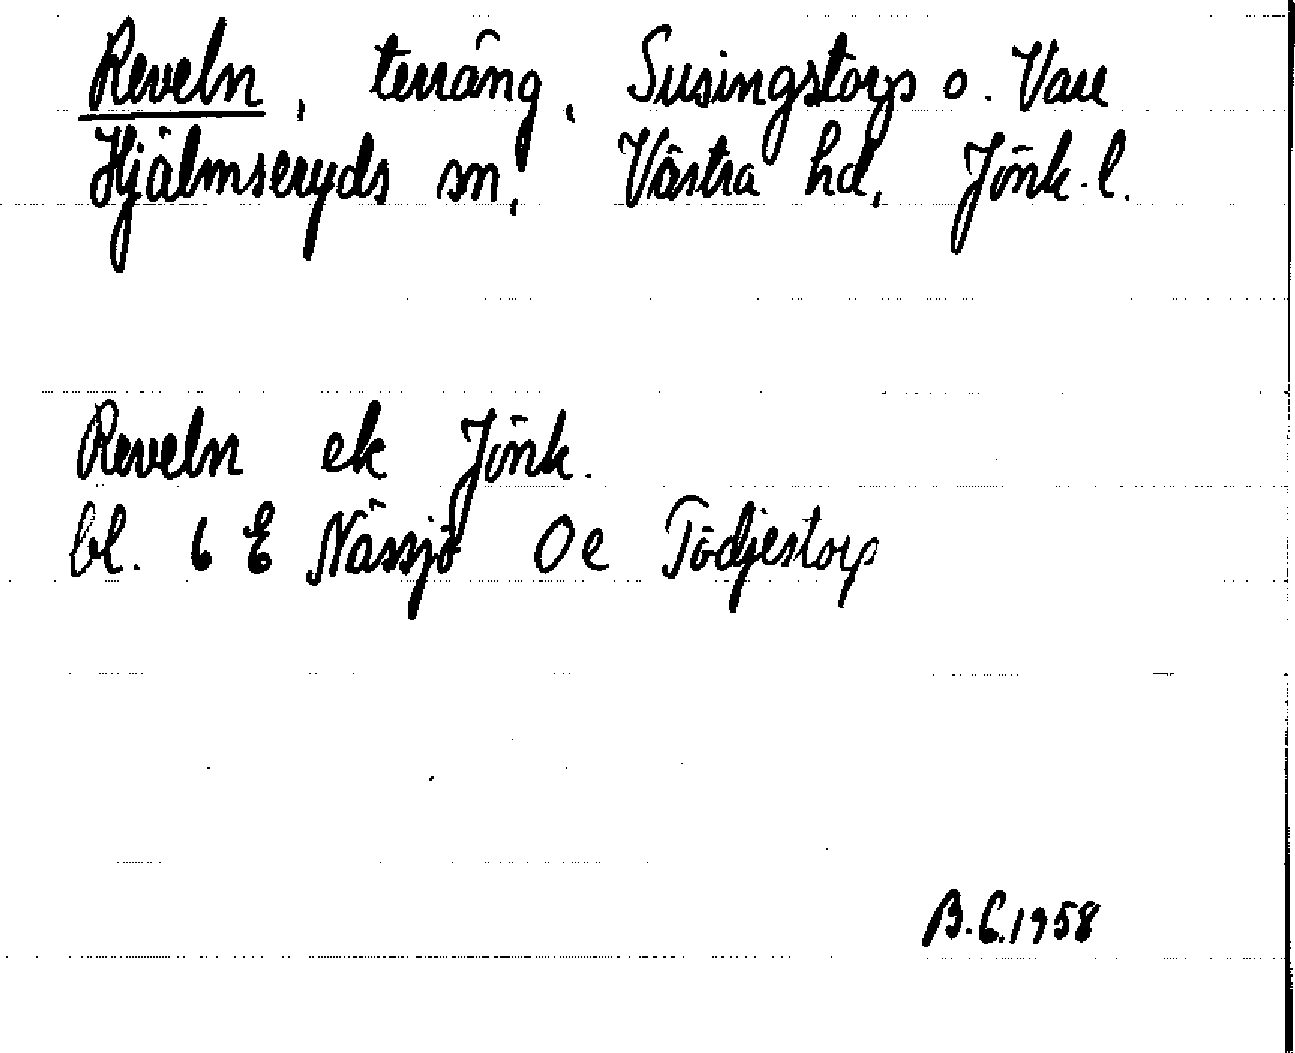 Reveln, terräng, Susingstorp o. Vare
Hjälmseryds sn, Västra hd, Jönk. l.
Reveln ek Jönk.
bl. 6 E Nässjö 0e Tödjestorp
B.G.1958